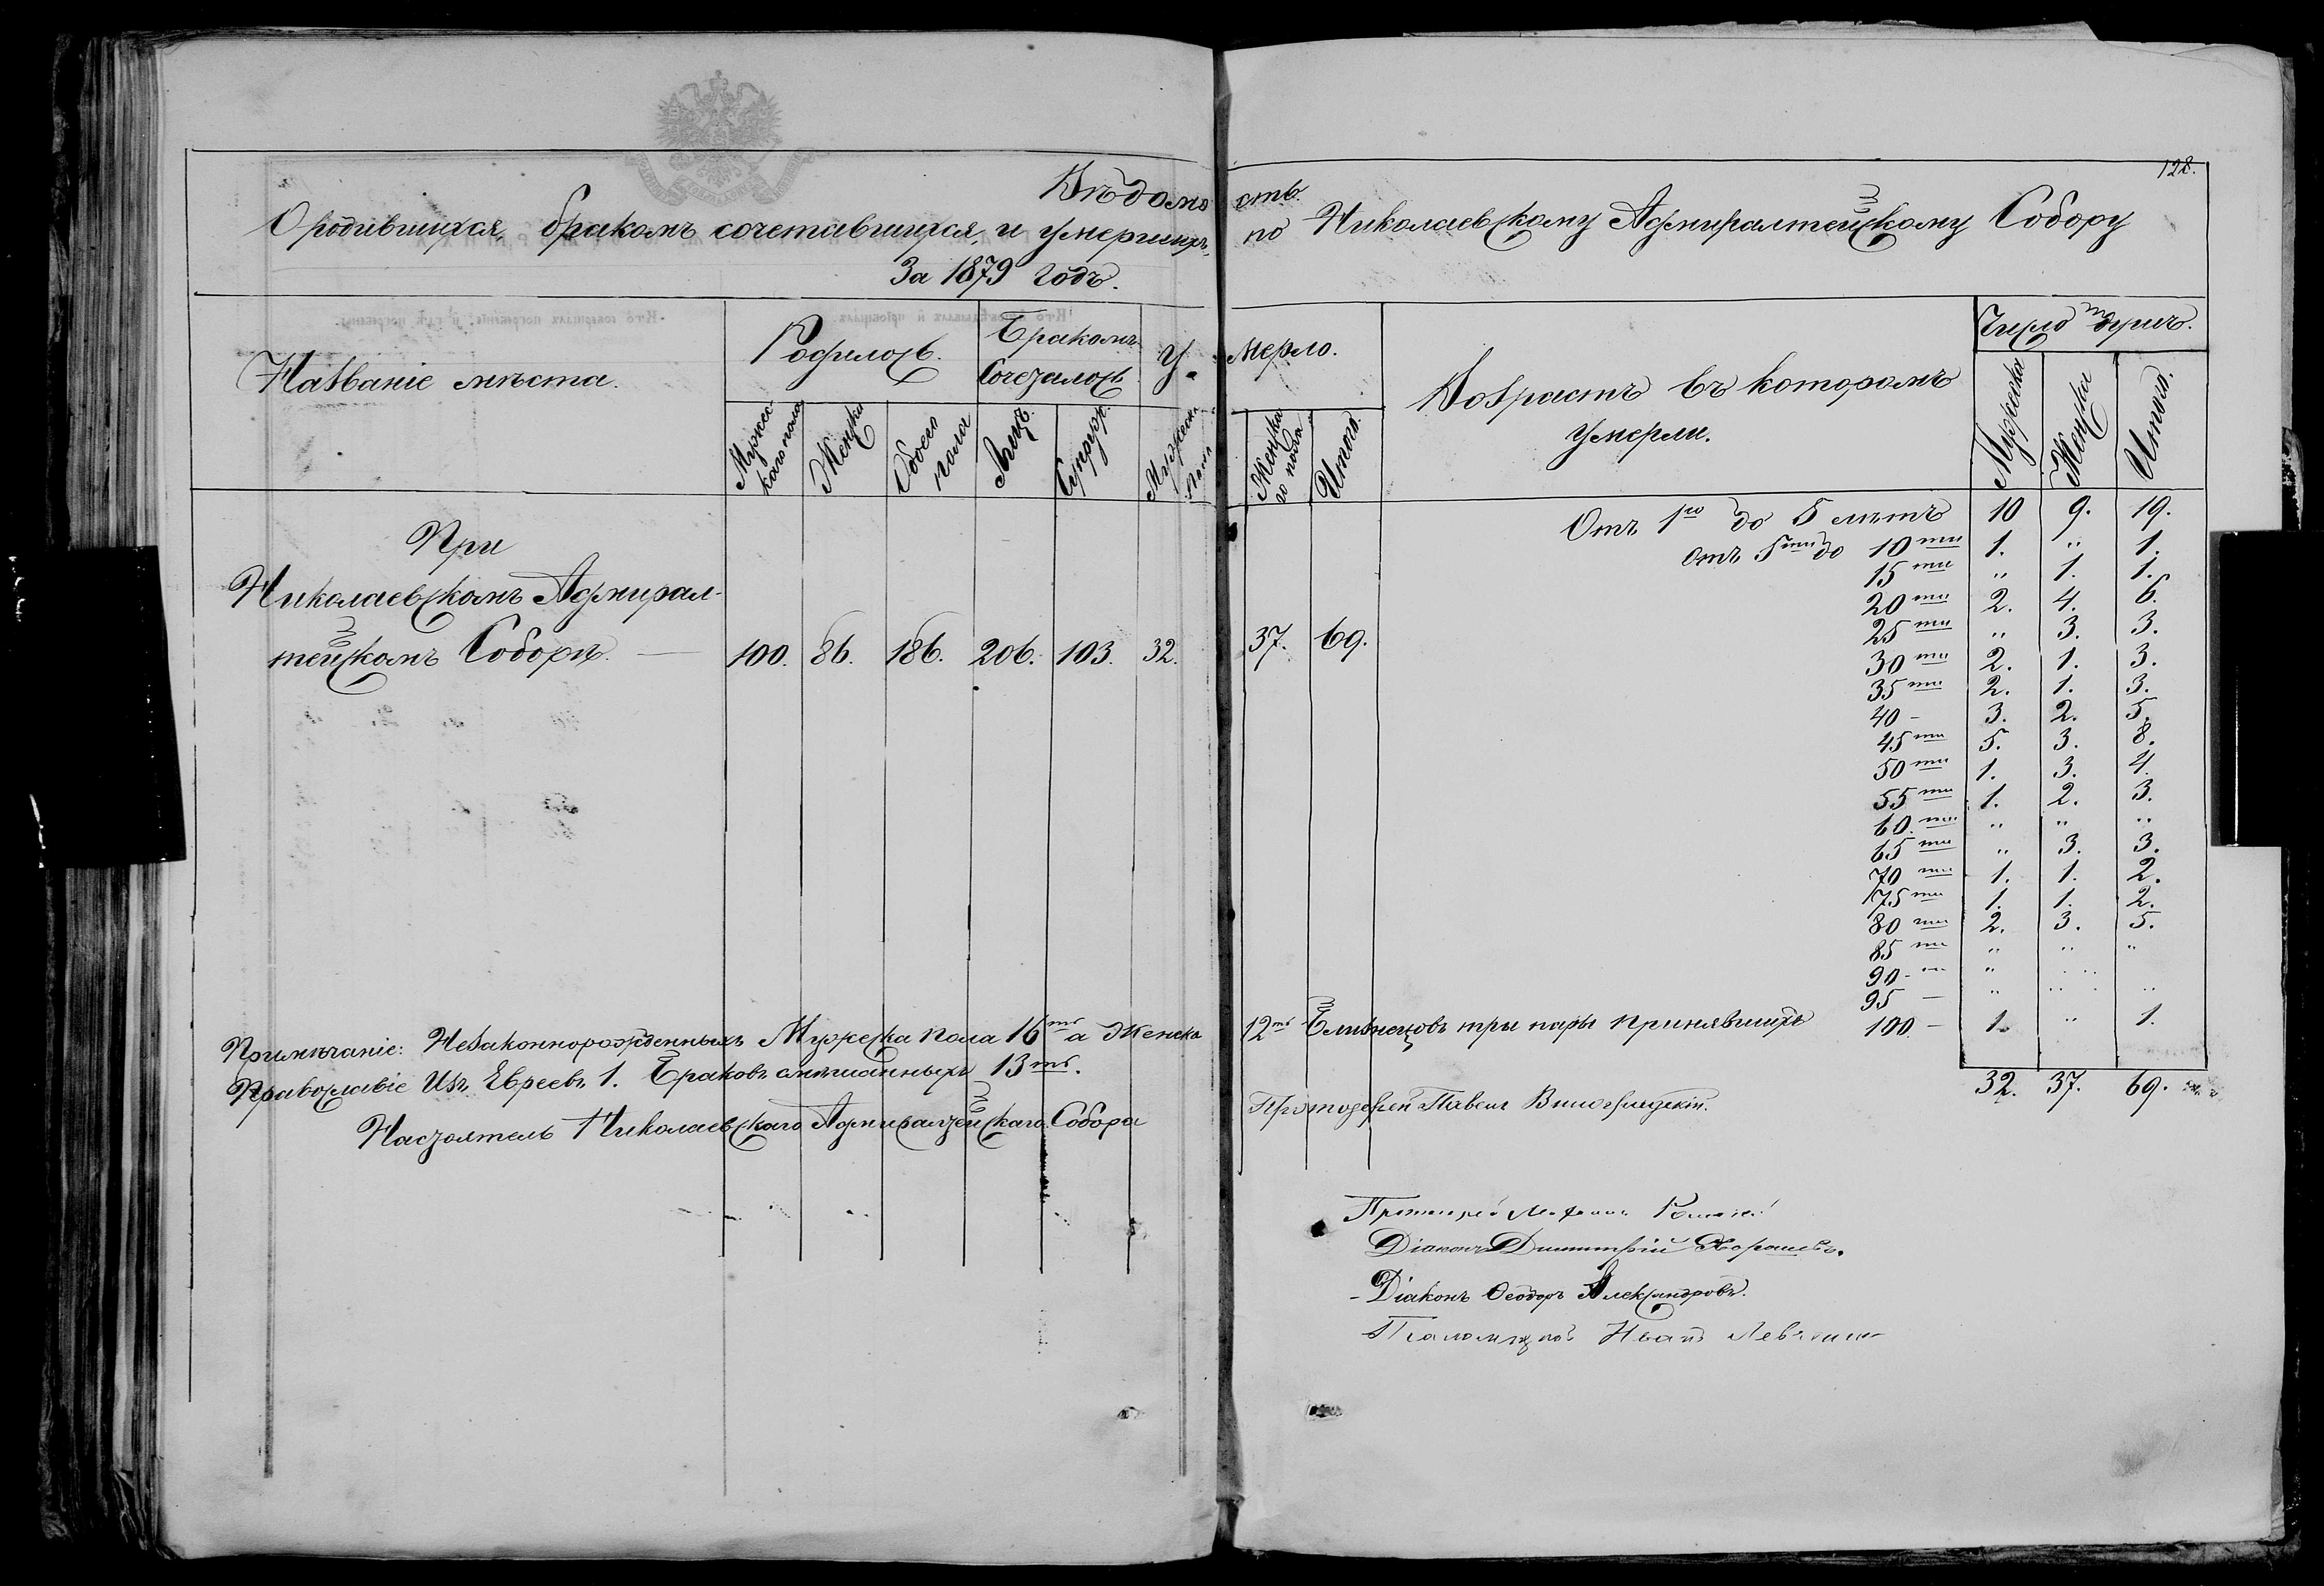 128.
Вѣдомость
О родившихся, бракомъ сочетавшихся, и умершихъ, по Николаевскому Адмиралтейскому Собору
За 1879 годъ.
Названіе мѣста.
Родилось.
Бракомъ Сочеталось
Умерло.
Возрастъ въ которомъ умерли.
Число душъ.
Мужескаго пола
Женска
Обоего пола
Лицъ.
Супруж.
Мужеска пола
Женскаго пола
Итого.
Мужеска
Женска
Итого.
При
Николаевскомъ Адмирал-
тейскомъ Соборѣ. — 100. 86. 186. 206. 103. 32. 37. 69.
Отъ 1го до 5 лѣтъ 10 9. 19.
отъ 5ти до 10ти 1. „ 1.
15ти „ 1. 1.
20ти 2. 4. 6.
25ти „ 3. 3.
30ти 2. 1. 3.
35ти 2. 1. 3.
40 - 3. 2. 5.
45ти 5. 3. 8.
50ти 1. 3. 4.
55ти 1. 2. 3.
60.ти „ „ „
65ти „ 3. 3.
70ти 1. 1. 2.
75ти 1. 1. 2.
80ти 2. 3. 5.
85ти „ „ „
90-ти „ „ „
95 — „ „ „
100 — 1. „ 1.
32. 37. 69.
Примѣчаніе: Незаконнорожденныхъ Мужеска пола 16ть а Женска 12ть Близнецовъ три пары принявшихъ
Православіе Изъ Евреевъ 1. Браковъ смѣшанныхъ 13ть.
Настоятель Николаевскаго Адмиралтейскаго Собора Протоіерей Павелъ
Протоіерей
Діаконъ Димитрій
Діаконъ Ѳеодоръ Александровъ.
Псаломщикъ Иванъ